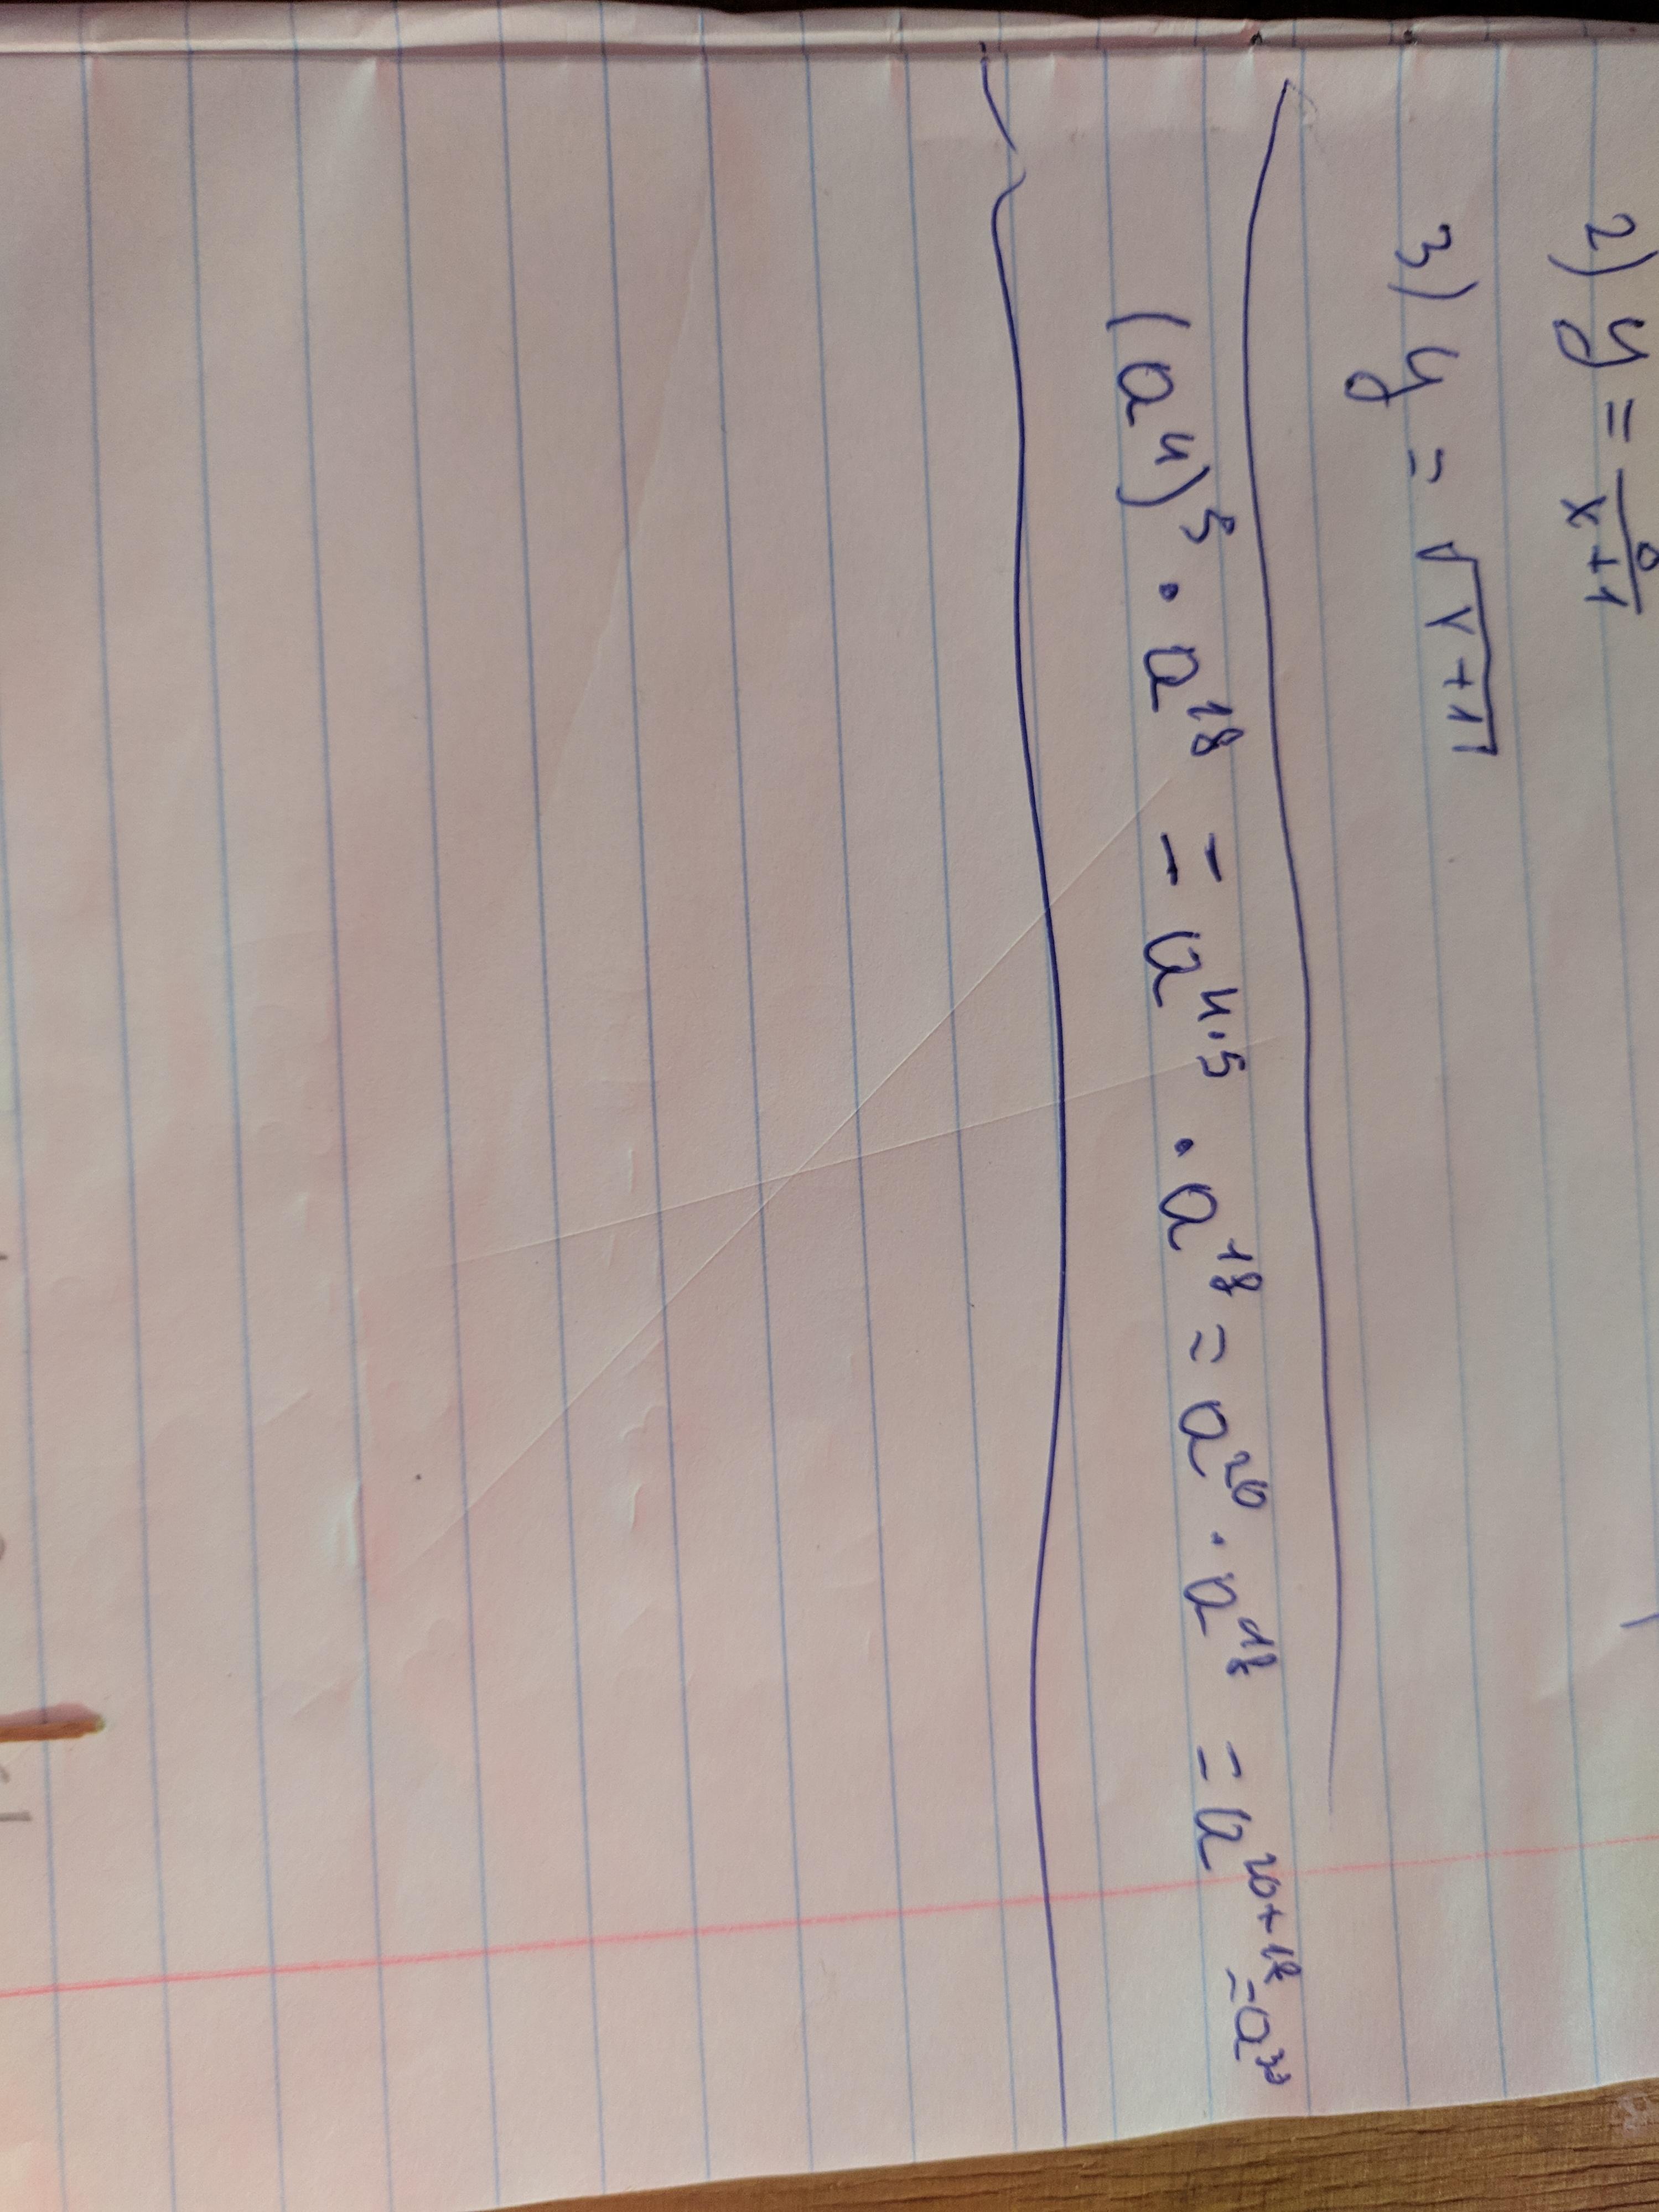 2) y = 8/(x+1)
3) y = √(x+1)
(a⁴)⁵ · a¹⁸ = a⁴·⁵ · a¹⁸ = a²⁰ · a¹⁸ = a²⁰⁺¹⁸ =